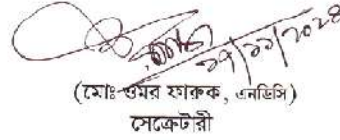 ২৭/১১/২০২৪
(মোঃ ওমর ফারুক, এনডিসি)
সেক্রেটারী